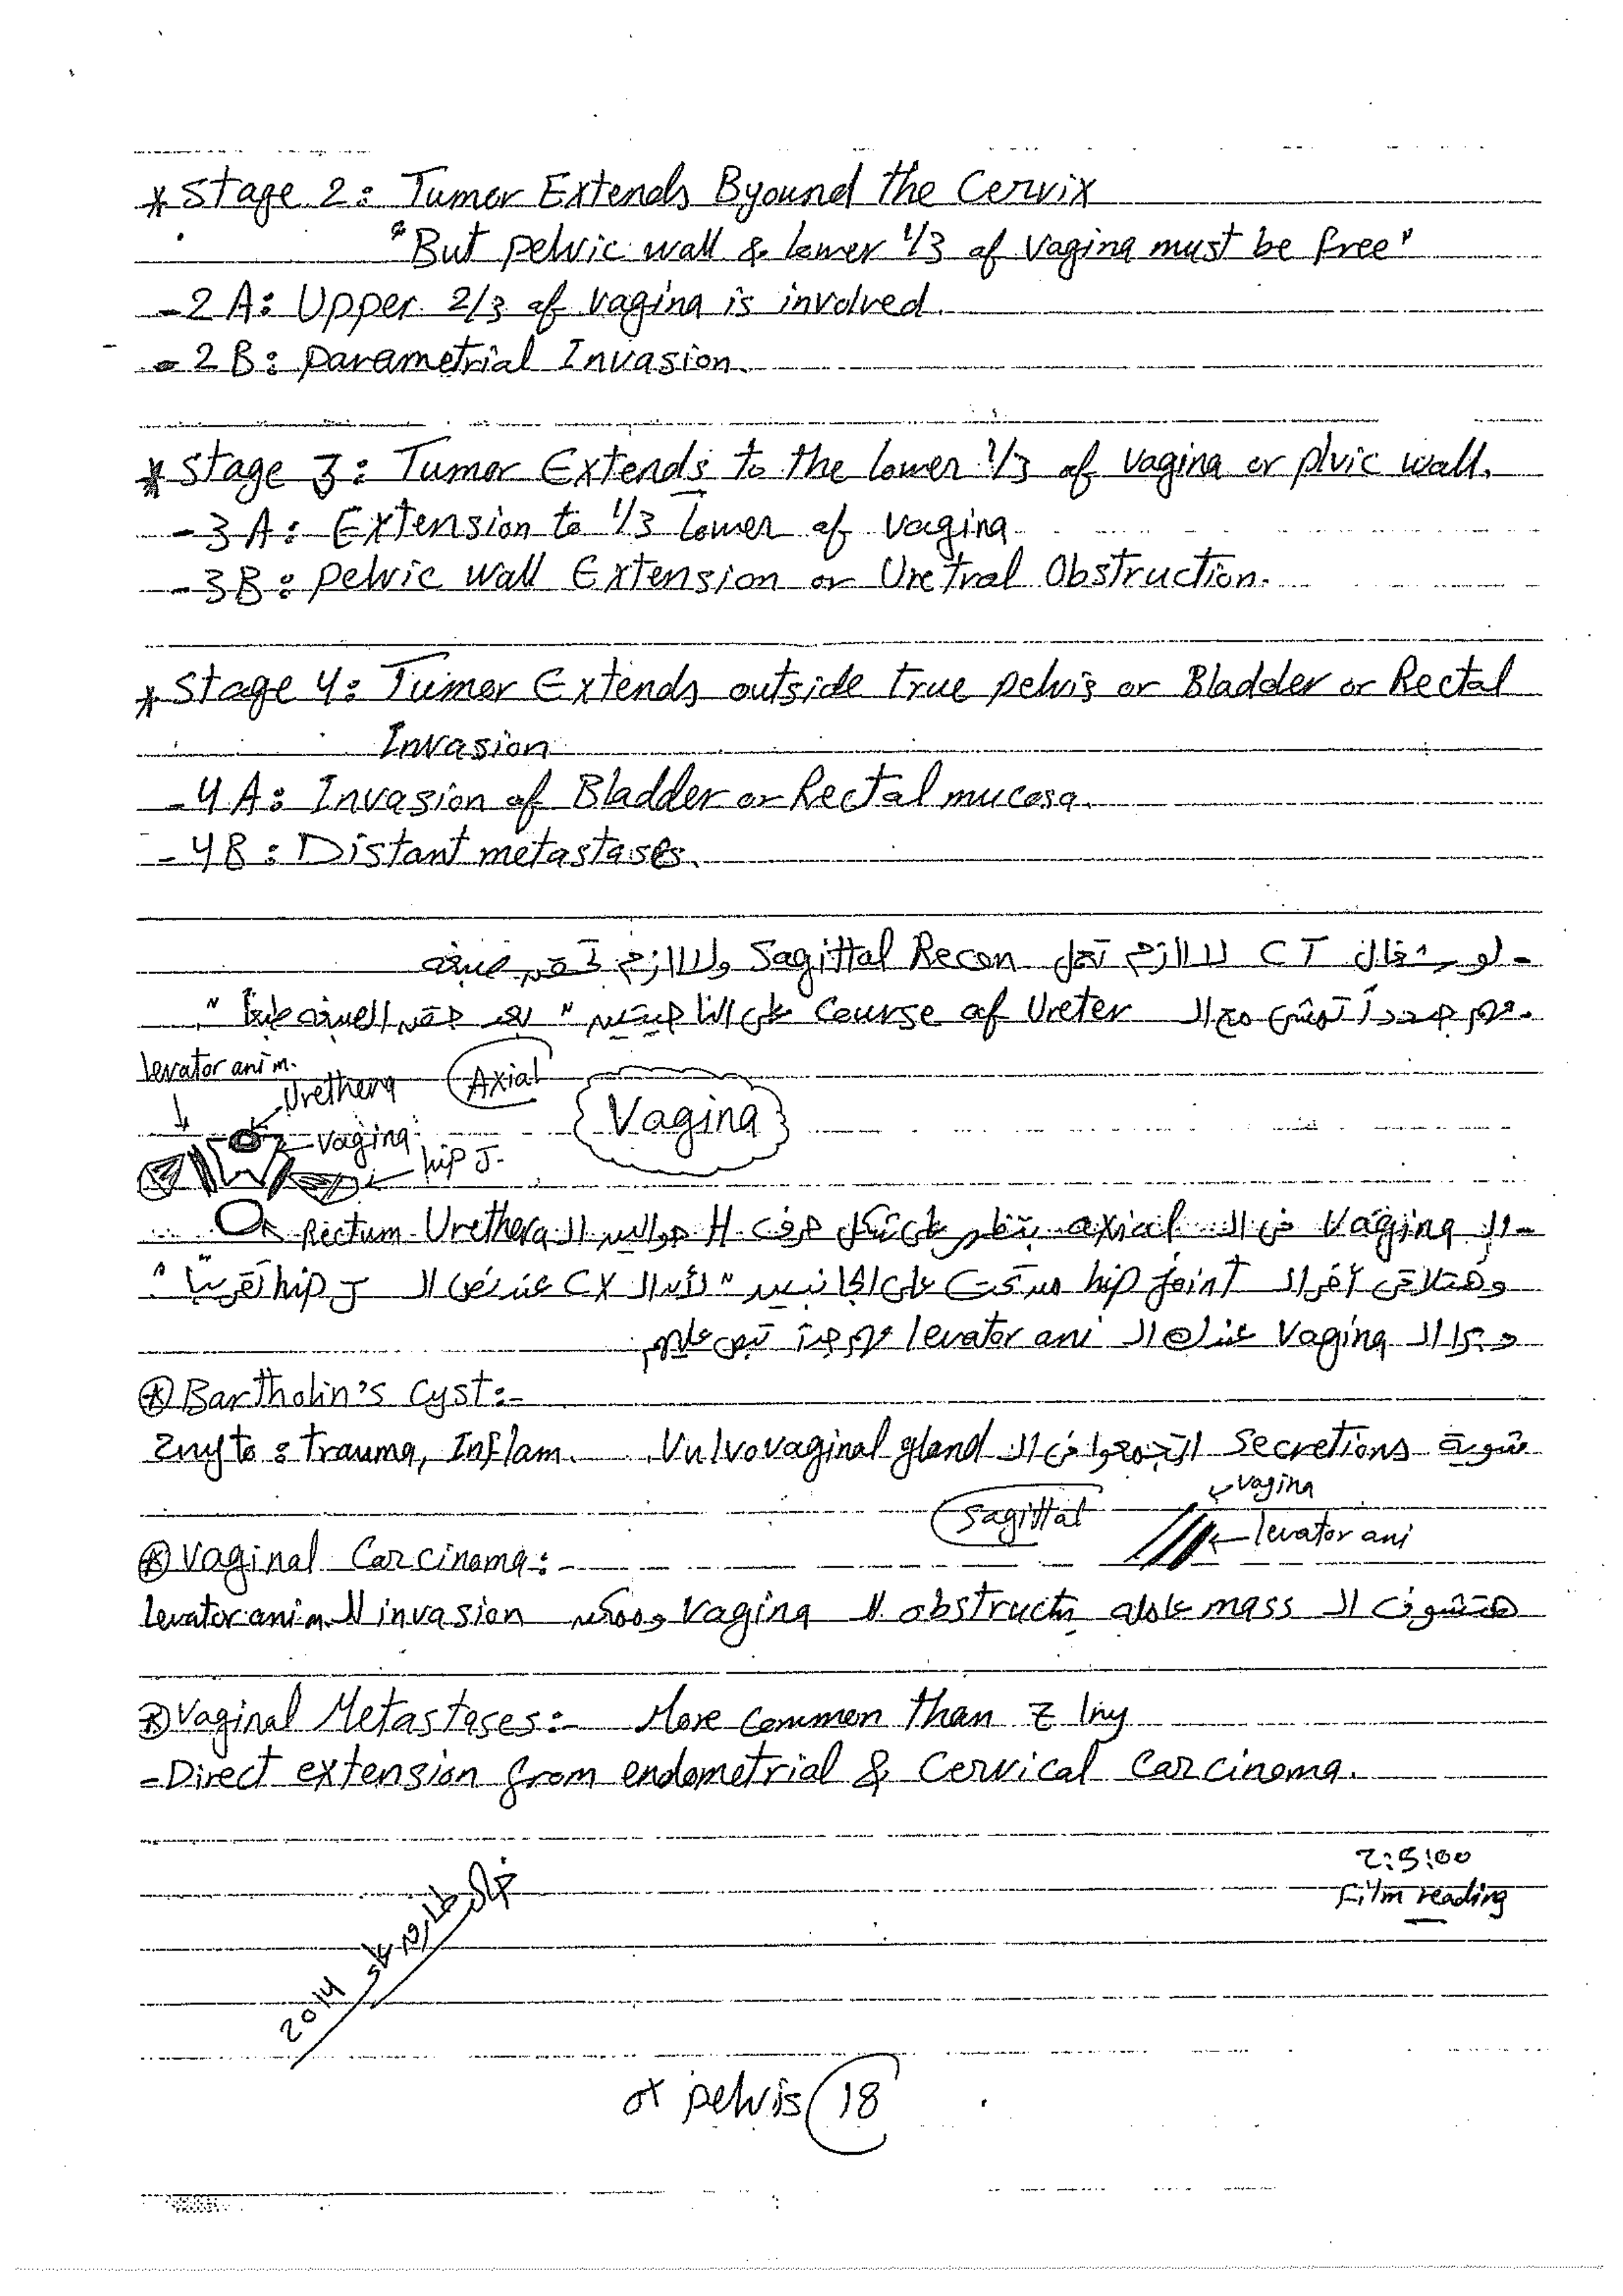 * Stage 2: Tumor Extends Byound the Cervix
"But pelvic wall & lower 1/3 of vagina must be free"
- 2 A: Upper 2/3 of vagina is involved.
- 2 B: parametrial Invasion.
* Stage 3: Tumor Extends to the lower 1/3 of vagina or plvic wall.
- 3 A: Extension to 1/3 lower of vagina
- 3B: pelvic wall Extension or Uretral Obstruction.
* Stage 4: Tumor Extends outside true pelvis or Bladder or Rectal
Invasion
- 4 A: Invasion of Bladder or Rectal mucosa.
- 4B: Distant metastases.
- لو شغال CT لااازم تعمل Sagittal Recon ولااازم تحقن صبغه
مهم جدداً تمشى مع الـ Course of Ureter على الناحيتين " بعد حقن الصبغه طبعاً "
levator ani m.
Urethera
Axial
Vagina
vagina
hip J.
Rectum
- الـ Vagina فى الـ axial بتظهر على شكل حرف H حوالين الـ Urethera
وهتلاقى الـ hip joint على الجانبين " لأن الـ CX عند الـ hip J تقريباً "
ورا الـ Vagina الـ levator ani مهم جداً تبص عليهم
* Bartholin's Cyst:-
شوية Secretions اتجمعوا فى الـ Vulvovaginal gland.
2ry to : trauma, Inflam.
Sagittal
vagina
levator ani
* Vaginal Carcinoma:
هتشوف الـ mass عامله obstructn للـ Vagina وممكن invasion للـ levator ani m.
* Vaginal Metastases:- More common than 1ry
- Direct extension from endometrial & Cervical Carcinoma.
2:5:00
Film reading
2014
pelvis 18